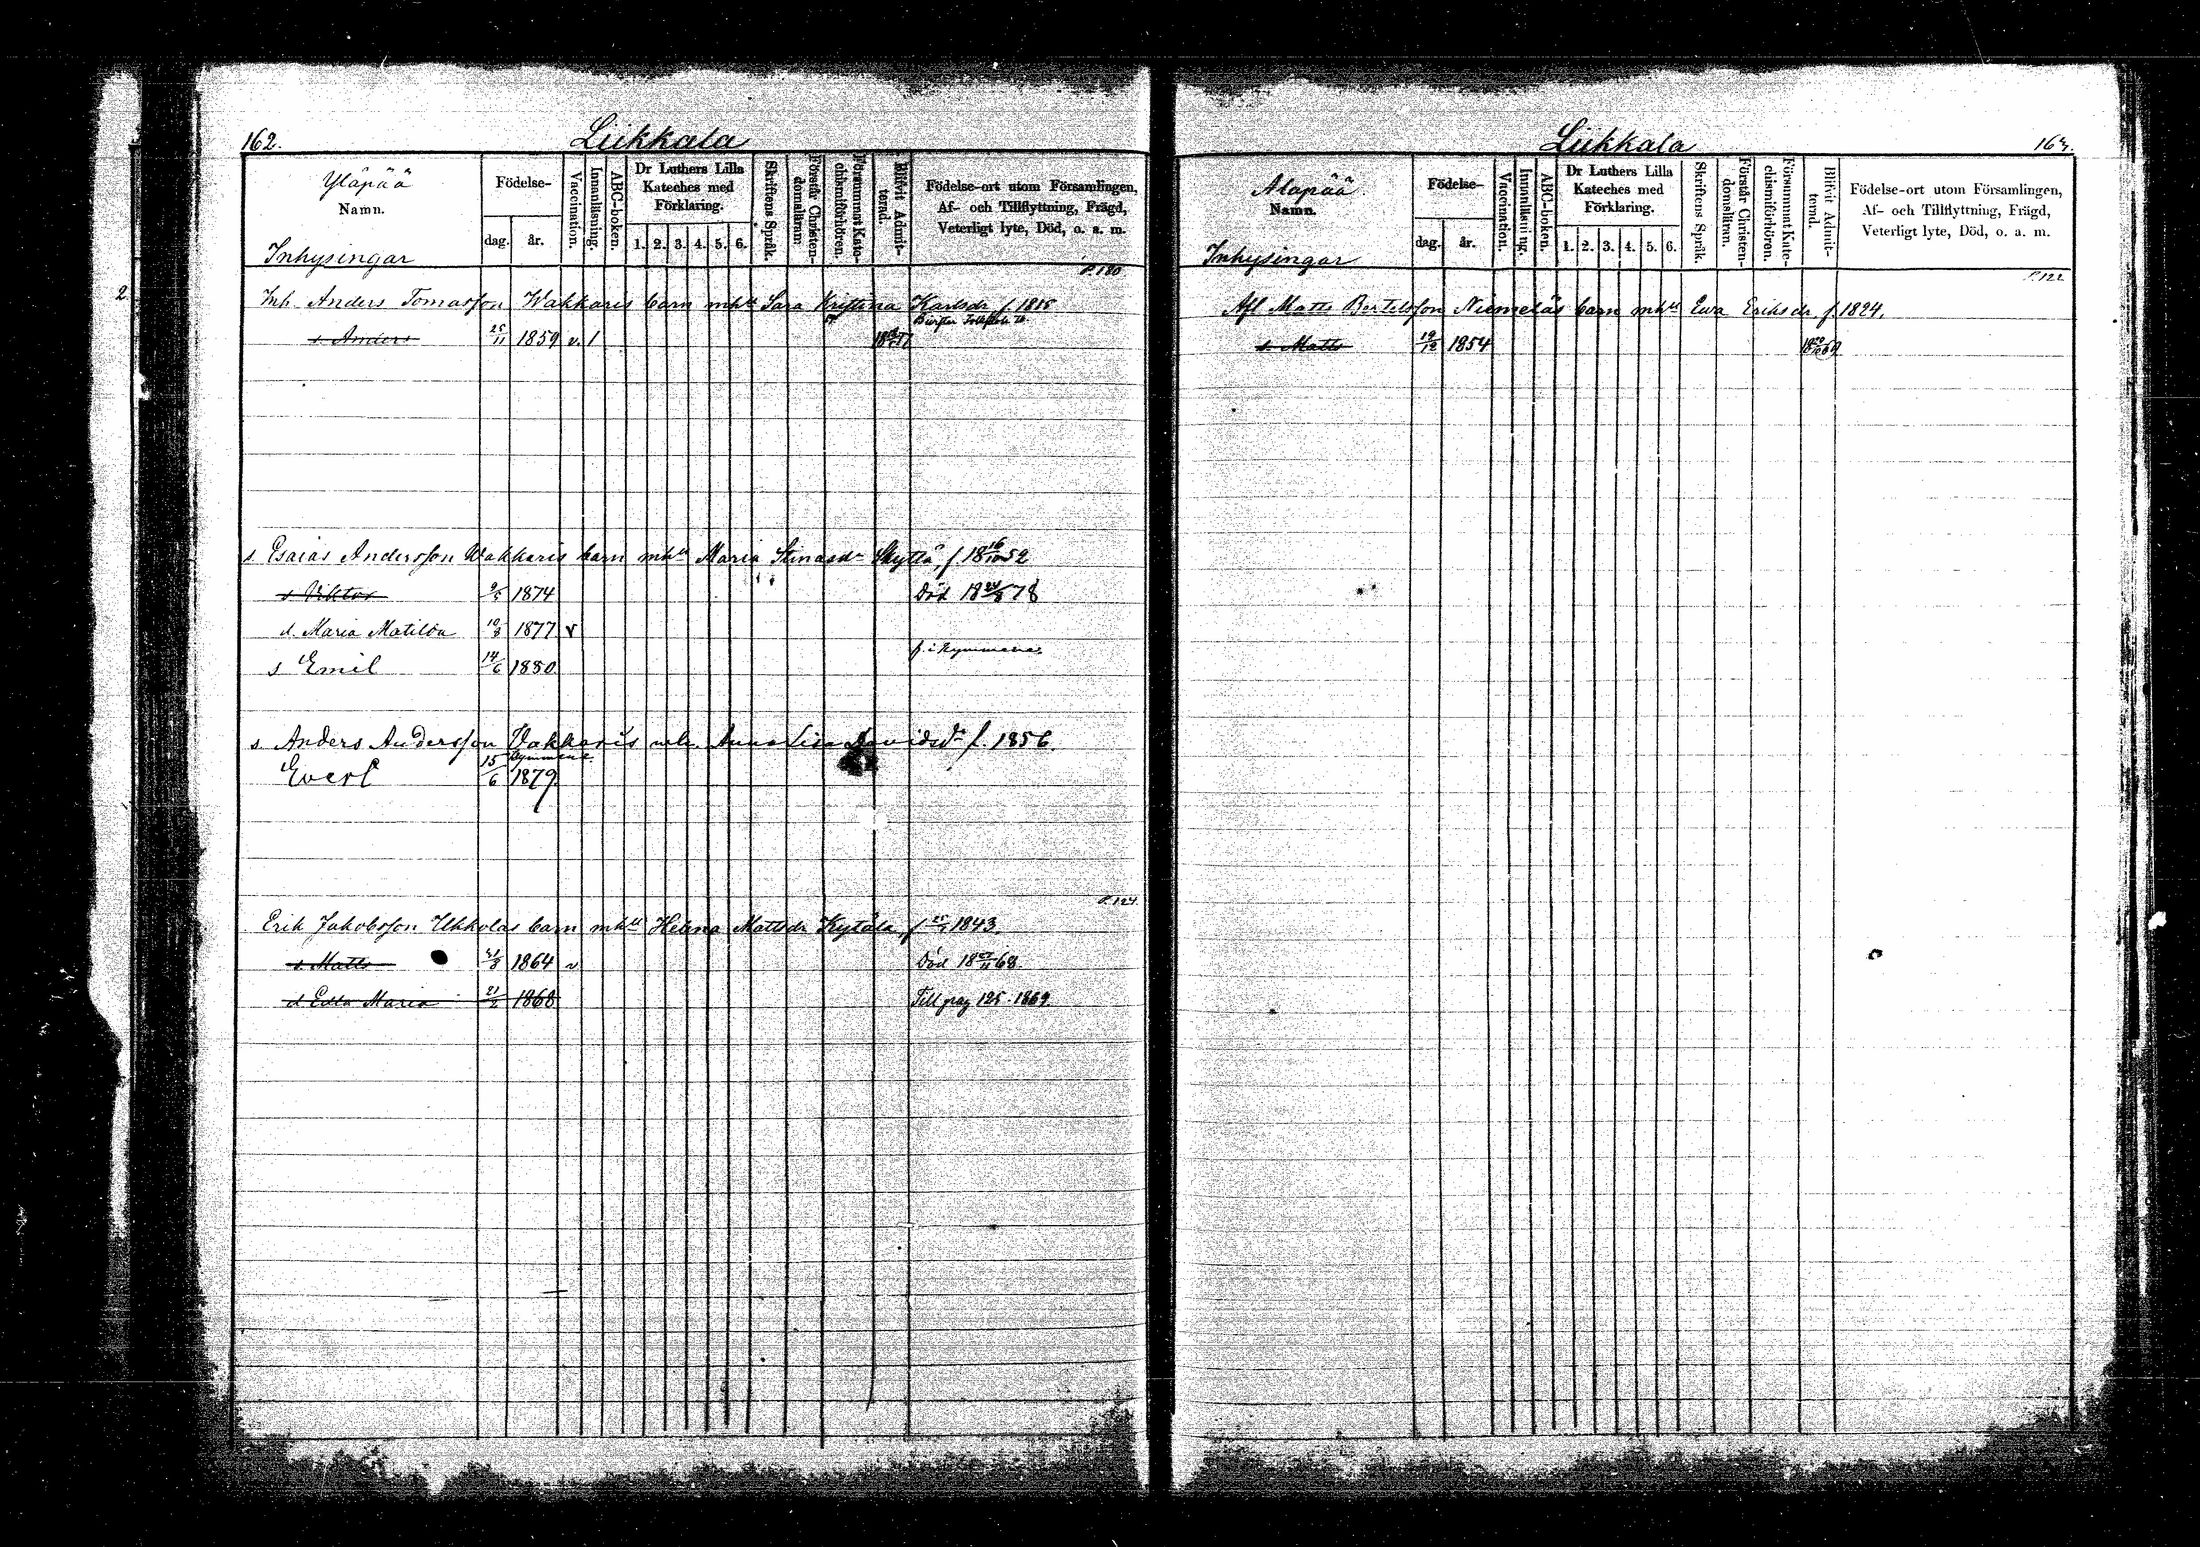 162.
Liikkala
Yläpää
Namn.
Inhysingar
Födelse-
dag. år.
Vaccination.
Innanläsning.
ABC-boken.
Dr Luthers Lilla
Kateches med
Förklaring.
1. 2. 3. 4. 5. 6.
Skriftens Språk.
Förstår Christen-
domsläran.
Försummat Kate-
chismiförhören.
Blifvit Admit-
terad.
Födelse-ort utom Församlingen,
Af- och Tillflyttning, Frägd,
Veterligt lyte, Död, o. a. m.
P. 120
2
Inh. Anders Tomasson Wakkaris barn mh u Sara Kristina Karlsdr f 1815
s. Anders 25/11 1859 v. 1
s Esaias Andersson Wakkaris barn mh u Maria Skyttä, f 18 16/10 52
s Viktor 9/5 1874 Död 18 24/8 78
d. Maria Matilda 10/8 1877 v
s Emil 14/6 1880. f. i Kymmene.
s. Anders Andersson Vakkaris Anna Lisa Davidsdr f. 1856.
Kymmene
Evert 15/6 1879
P. 124.
Erik Jakobsson Ukkolas barn mh u Helena Mattsdr Kytälä, f 1843.
s. Matts 1864 v Död 18 68.
d Edla Maria 21/2 1868 Till pag 125. 1869.
Liikkala
163.
Alapää
Namn.
Inhysingar
Födelse-
dag. år.
Vaccination.
Innanläsning.
ABC-boken.
Dr Luthers Lilla
Kateches med
Förklaring.
1. 2. 3. 4. 5. 6.
Skriftens Språk.
Förstår Christen-
domsläran.
Försummat Kate-
chismiförhören.
Blifvit Admit-
terad.
Födelse-ort utom Församlingen,
Af- och Tillflyttning, Frägd,
Veterligt lyte, Död, o. a. m.
P. 122
Afl Matts Bertelsson Niemeläs barn mh u Ewa Eriksdr f. 1824.
s. Matts 19/12 1854 18 20/10 69